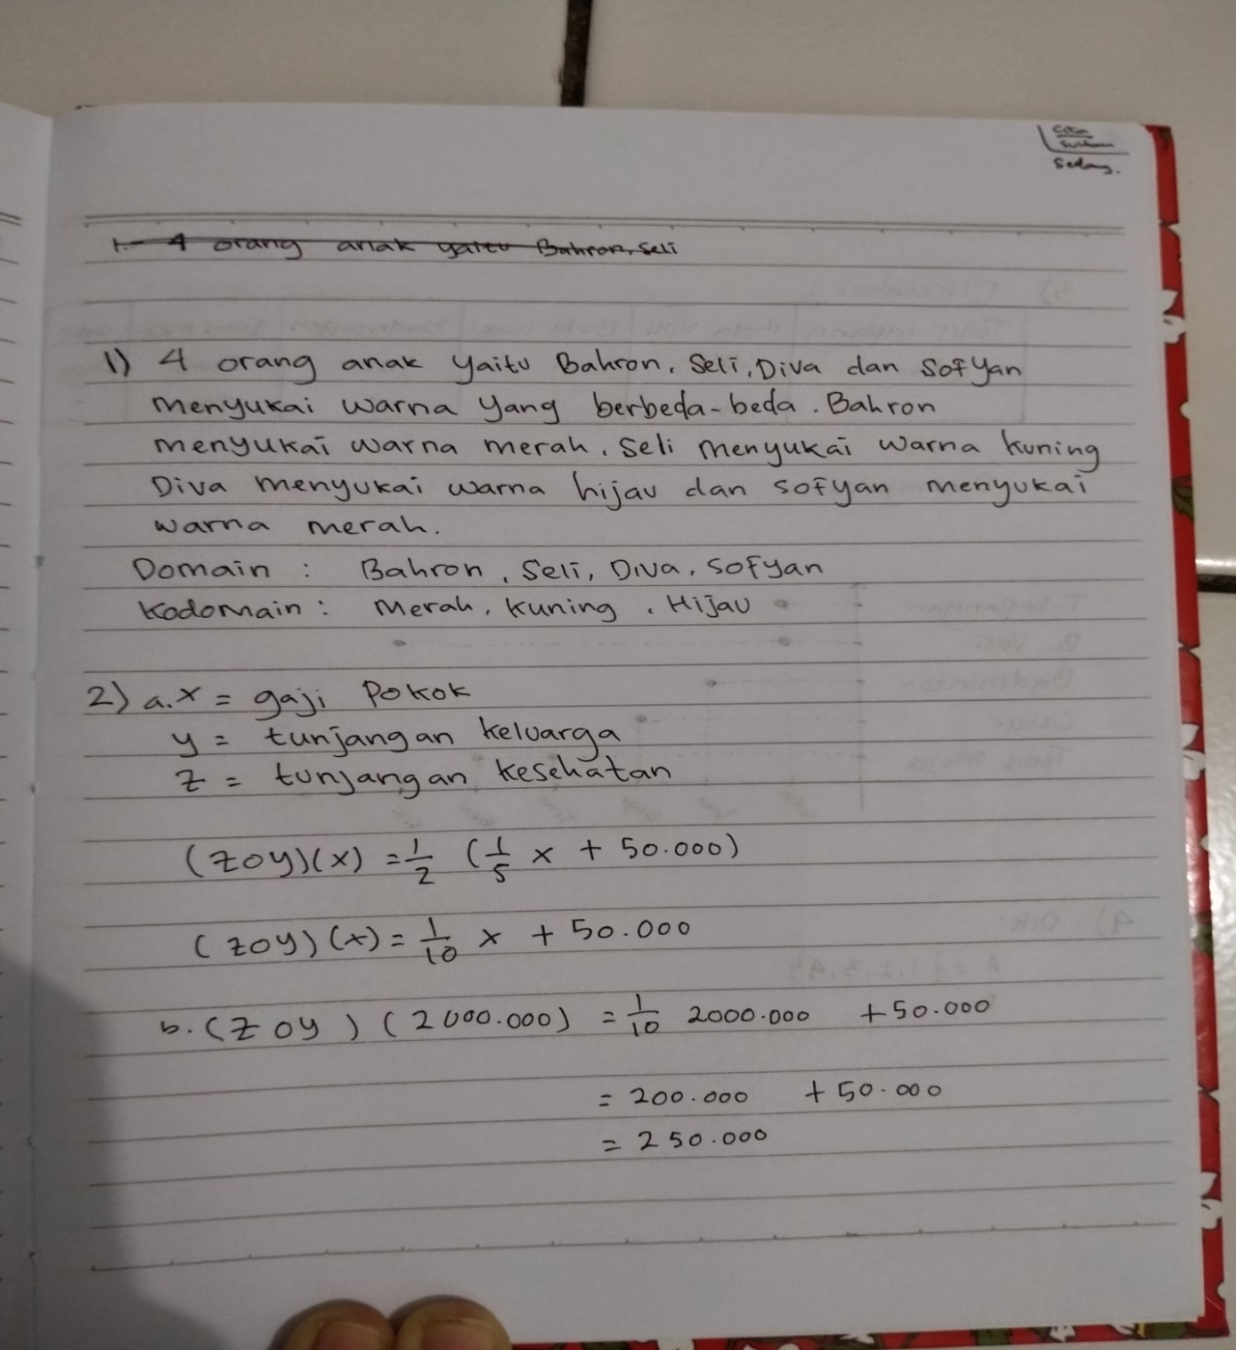 Sedang.
1. 4 orang anak yaitu Bahron, Seli
1) 4 orang anak yaitu Bahron, Seli, Diva dan Sofyan
menyukai warna yang berbeda-beda. Bahron
menyukai warna merah, Seli menyukai warna kuning
Diva menyukai warna hijau dan sofyan menyukai
warna merah.
Domain : Bahron, Seli, Diva, Sofyan
Kodomain : merah, kuning, Hijau
2) a. x = gaji pokok
y = tunjangan keluarga
z = tunjangan kesehatan
(zoy)(x) = 1/2 (1/5 x + 50.000)
(zoy)(x) = 1/10 x + 50.000
b. (zoy)(2000.000) = 1/10 2000.000 + 50.000
= 200.000 + 50.000
= 250.000